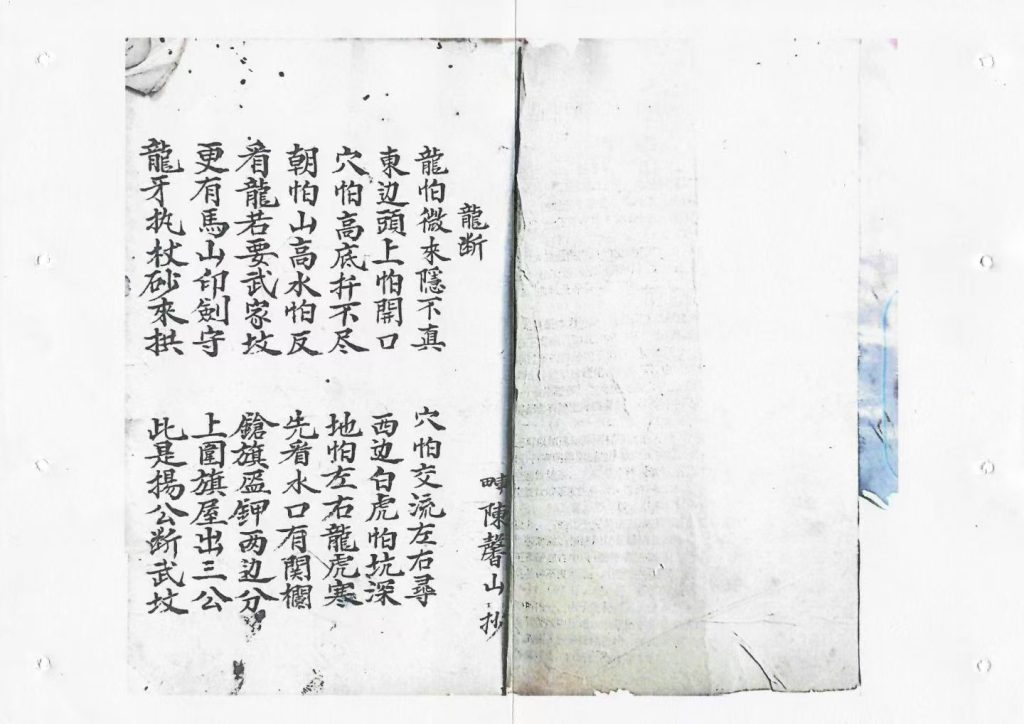 龍断
陳馨山抄
龍怕微來隱不真
穴怕交流左右尋
東边頭上怕開口
西边白虎怕坑深
穴怕高底扦不尽
地怕左右龍虎寒
朝怕山高水怕反
先看水口有関欄
看龍若要武家坟
鎗旗盔鉀两边分
更有馬山印劍守
上圍旗屋出三公
龍牙执杖砂來拱
此是揚公断武坟